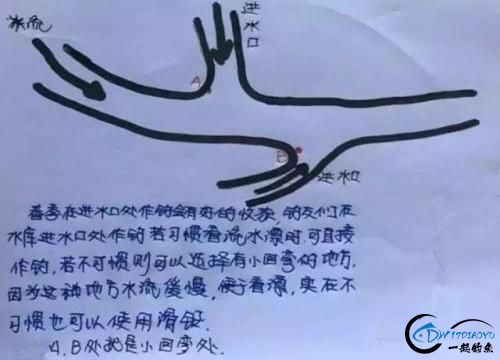 水流
进水口
进水口
春季在进水口处作钓会有好的收获，钓友们在
水库进水口处作钓若习惯看流水漂时，可直接
作钓，若不习惯则可以选择有小回弯的地方，
因为这种地方水流缓慢，便于看漂，实在不
习惯也可以使用滑铅。
A、B处就是小回弯处.
A
B
DW17DIAOYU
一起钓鱼